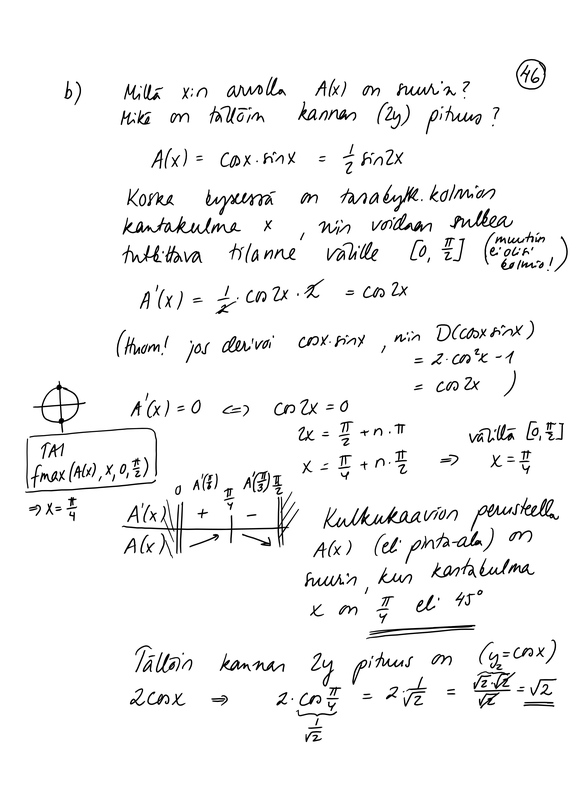 46
b) Millä x:n arvolla A(x) on suurin?
Mikä on tällöin kannan (2y) pituus?
A(x) = cosx·sinx = 1/2 sin2x
Koska kyseessä on tasakylk. kolmion
kantakulma x, niin voidaan sulkea
tutkittava tilanne välille [0, π/2] (muutoin ei olisi kolmio!)
A'(x) = 1/2 · cos2x · 2 = cos2x
(Huom! jos derivoi cosx·sinx, niin D(cosx sinx)
= 2·cos²x - 1
= cos2x )
A'(x) = 0 <=> cos2x = 0
2x = π/2 + n·π
x = π/4 + n·π/2 => välillä [0, π/2] x = π/4
TAI
fmax(A(x), x, 0, π/2)
=> x = π/4
0 A'(π/8) π/4 A'(π/3) π/2
A'(x) + −
A(x)
Kulkukaavion perusteella
A(x) (eli pinta-ala) on
suurin, kun kantakulma
x on π/4 eli 45°
Tällöin kannan 2y pituus on (y=cosx)
2cosx => 2·cos π/4 = 2·1/√2 = √2·√2/√2 = √2
1/√2
2